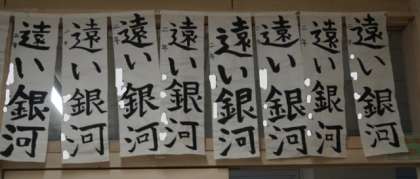 遠い銀河
遠い銀河
遠い銀河
遠い銀河
遠い銀河
遠い銀河
遠い銀河
遠い銀河